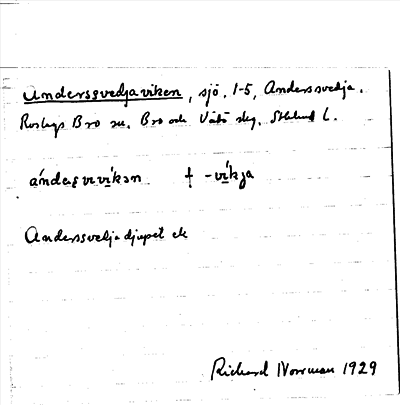 Anderssvedjaviken, sjö, 1-5, Anderssvedja,
Roslags Bro sn, Bro och Vätö slg, Sthlms l.
ándeʂvivíkən † -víkja
Anderssvedjadjupet ek
Richard Norrman 1929